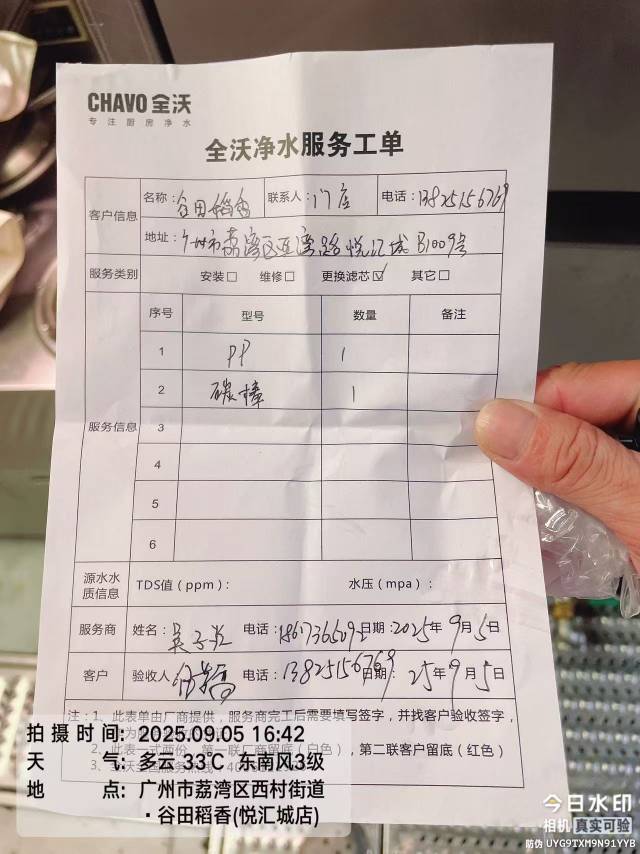 CHAVO 全沃
专注厨房净水
全沃净水服务工单
客户信息
名称：谷田稻香 联系人：门店 电话：13825156769
地址：广州市荔湾区 湾路悦汇城B1009号
服务类别 安装□ 维修□ 更换滤芯☑ 其它□
服务信息
序号 型号 数量 备注
1 PP 1
2 碳棒 1
3
4
5
6
源水水质信息 TDS值（ppm）： 水压（mpa）：
服务商 姓名： 电话： 日期：2025年9月5日
客户 验收人 电话：13825156769 日期：25年9月5日
注：1、此表单由厂商提供，服务商完工后需要填写签字，并找客户验收签字，
2、此表一式两份，第一联厂商留底（白色），第二联客户留底（红色）
拍摄时间：2025.09.05 16:42
天气：多云 33℃ 东南风3级
地点：广州市荔湾区西村街道
·谷田稻香(悦汇城店)
今日水印
相机 真实可验
防伪 UYG9TXM9N91YYB